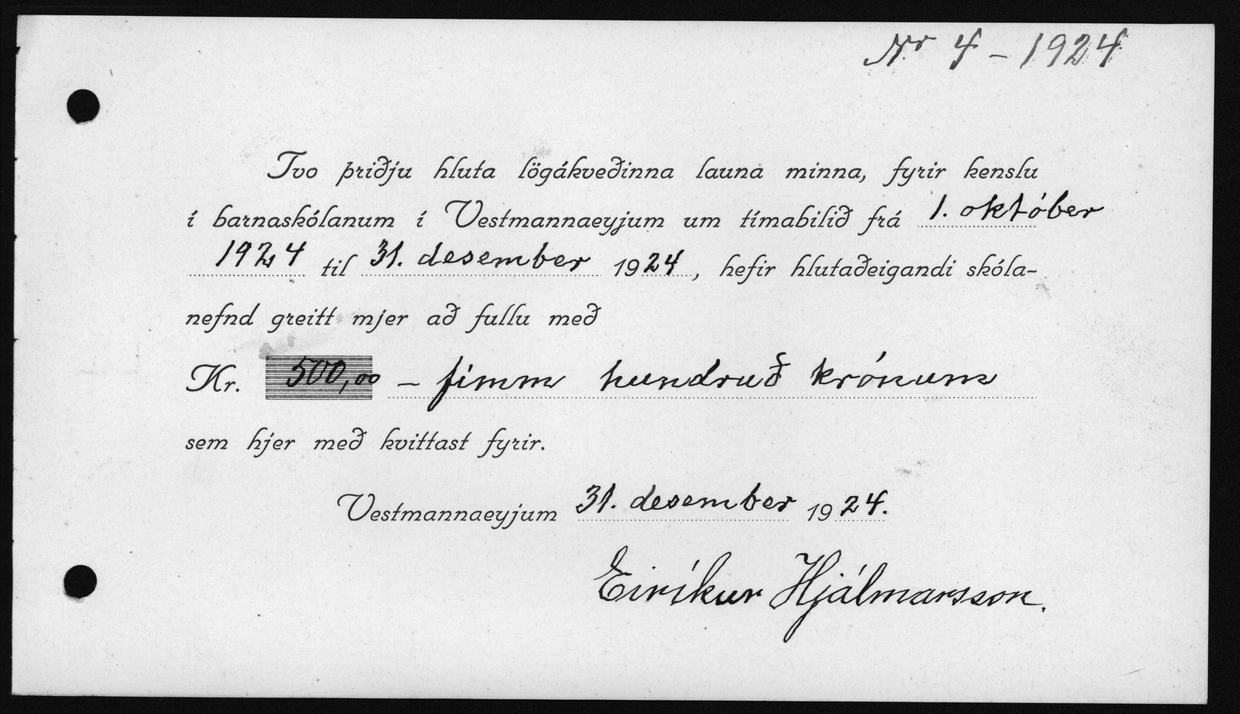 Nr 4 - 1924
Tvo þriðju hluta lögákveðinna launa minna, fyrir kenslu
í barnaskólanum í Vestmannaeyjum um tímabilið frá 1. október
1924 til 31. desember 1924, hefir hlutaðeigandi skóla-
nefnd greitt mjer að fullu með
Kr. 500,00 – fimm hundruð krónum
sem hjer með kvittast fyrir.
Vestmannaeyjum 31. desember 1924.
Eiríkur Hjálmarsson.